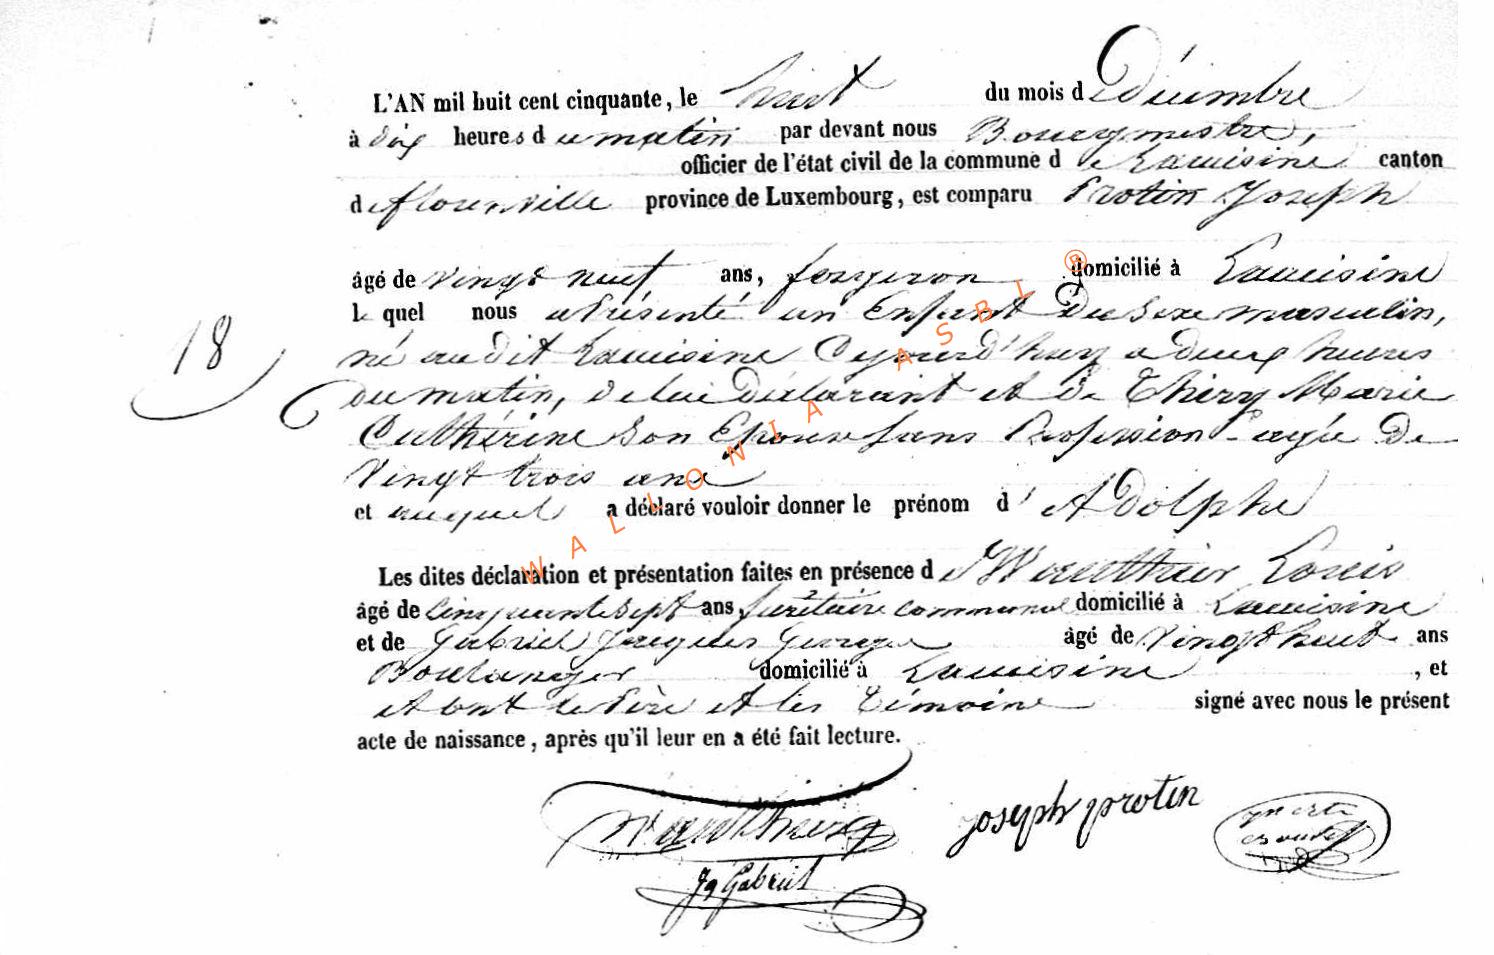 L'AN mil huit cent cinquante, le huit du mois de Décembre
à dix heures du matin par devant nous Bourgmestre,
officier de l'état civil de la commune de Lacuisine canton
de florenville province de Luxembourg, est comparu Protin Joseph
âgé de vingt neuf ans, forgeron domicilié à Lacuisine
lequel nous a Présenté un Enfant Du Sexe masculin,
18
né audit Lacuisine Cejourd'huy a deux heures
du matin, de lui Déclarant et de Thiry Marie
Cathérine Son Epouse Sans Profession agée De
Vingt trois ans
et auquel a déclaré vouloir donner le prénom d'Adolphe
Les dites déclaration et présentation faites en présence de Wauthier Louis
âgé de Cinquante sept ans, Sécrétaire communal domicilié à Lacuisine
et de Gabriel Jacques George âgé de Vingt huit ans
Boulanger domicilié à Lacuisine, et
et ont le Père et les Témoins signé avec nous le présent
acte de naissance, après qu'il leur en a été fait lecture.
Joseph protin
Jq Gabriel
WALLONIA ASBL ®